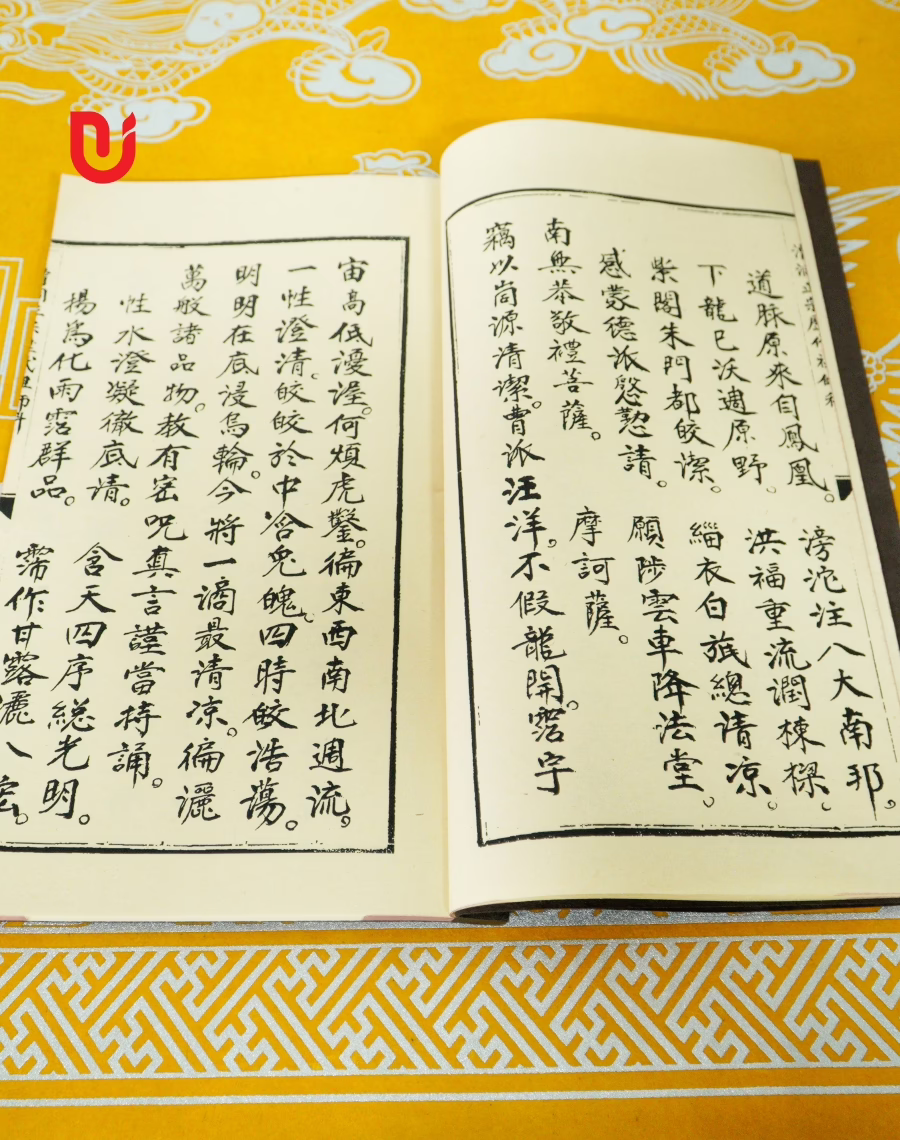 道脉原來自鳳凰。滂沱注八大南邦。
下龍已沃週原野。洪福重流潤棟樑。
紫閣朱門都皎潔。緇衣白總清凉。
感蒙德派慇懃請。願陟雲車降法堂。
南無恭敬禮菩薩。摩訶薩。
竊以尚源清潔。曹派汪洋。不假龍開。霑宇
宙高低瀀渥。何煩虎鑿。徧東西南北週流。
一性澄清。皎皎於中含兔魄。四時皎浩蕩。
明明在底浸烏輪。今將一滴最清凉。徧灑
萬般諸品物。教有密咒真言謹當持誦。
性水澄凝徹底清。含天四序總光明。
楊爲化雨霑群品。霈作甘露灑八